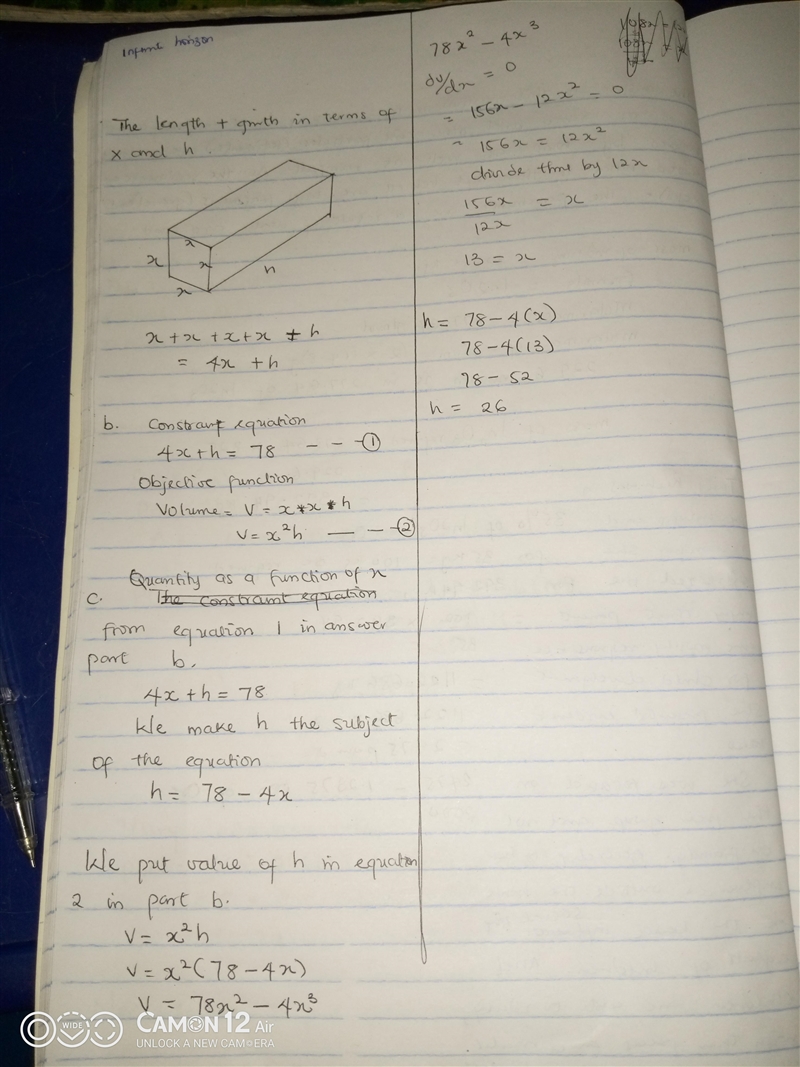 Infernt horizon
The length + girth in terms of
x and h.
x
x
x
x
h
x + x + x + x + h
= 4x + h
b. Constraint equation
4x + h = 78 - - - ①
Objective function
Volume = V = x * x * h
V = x²h — — - ②
Quantity as a function of x
c. The constraint equation
from equation 1 in answer
part b.
4x + h = 78
We make h the subject
of the equation
h = 78 - 4x
We put value of h in equation
2 in part b.
V = x²h
V = x²(78 - 4x)
V = 78x² - 4x³
78x² - 4x³
dv/dx = 0
= 156x - 12x² = 0
~ 156x = 12x²
divide thru by 12x
156x = x
12x
13 = x
h = 78 - 4(x)
78 - 4(13)
78 - 52
h = 26
WIDE
CAMON 12 Air
UNLOCK A NEW CAMERA